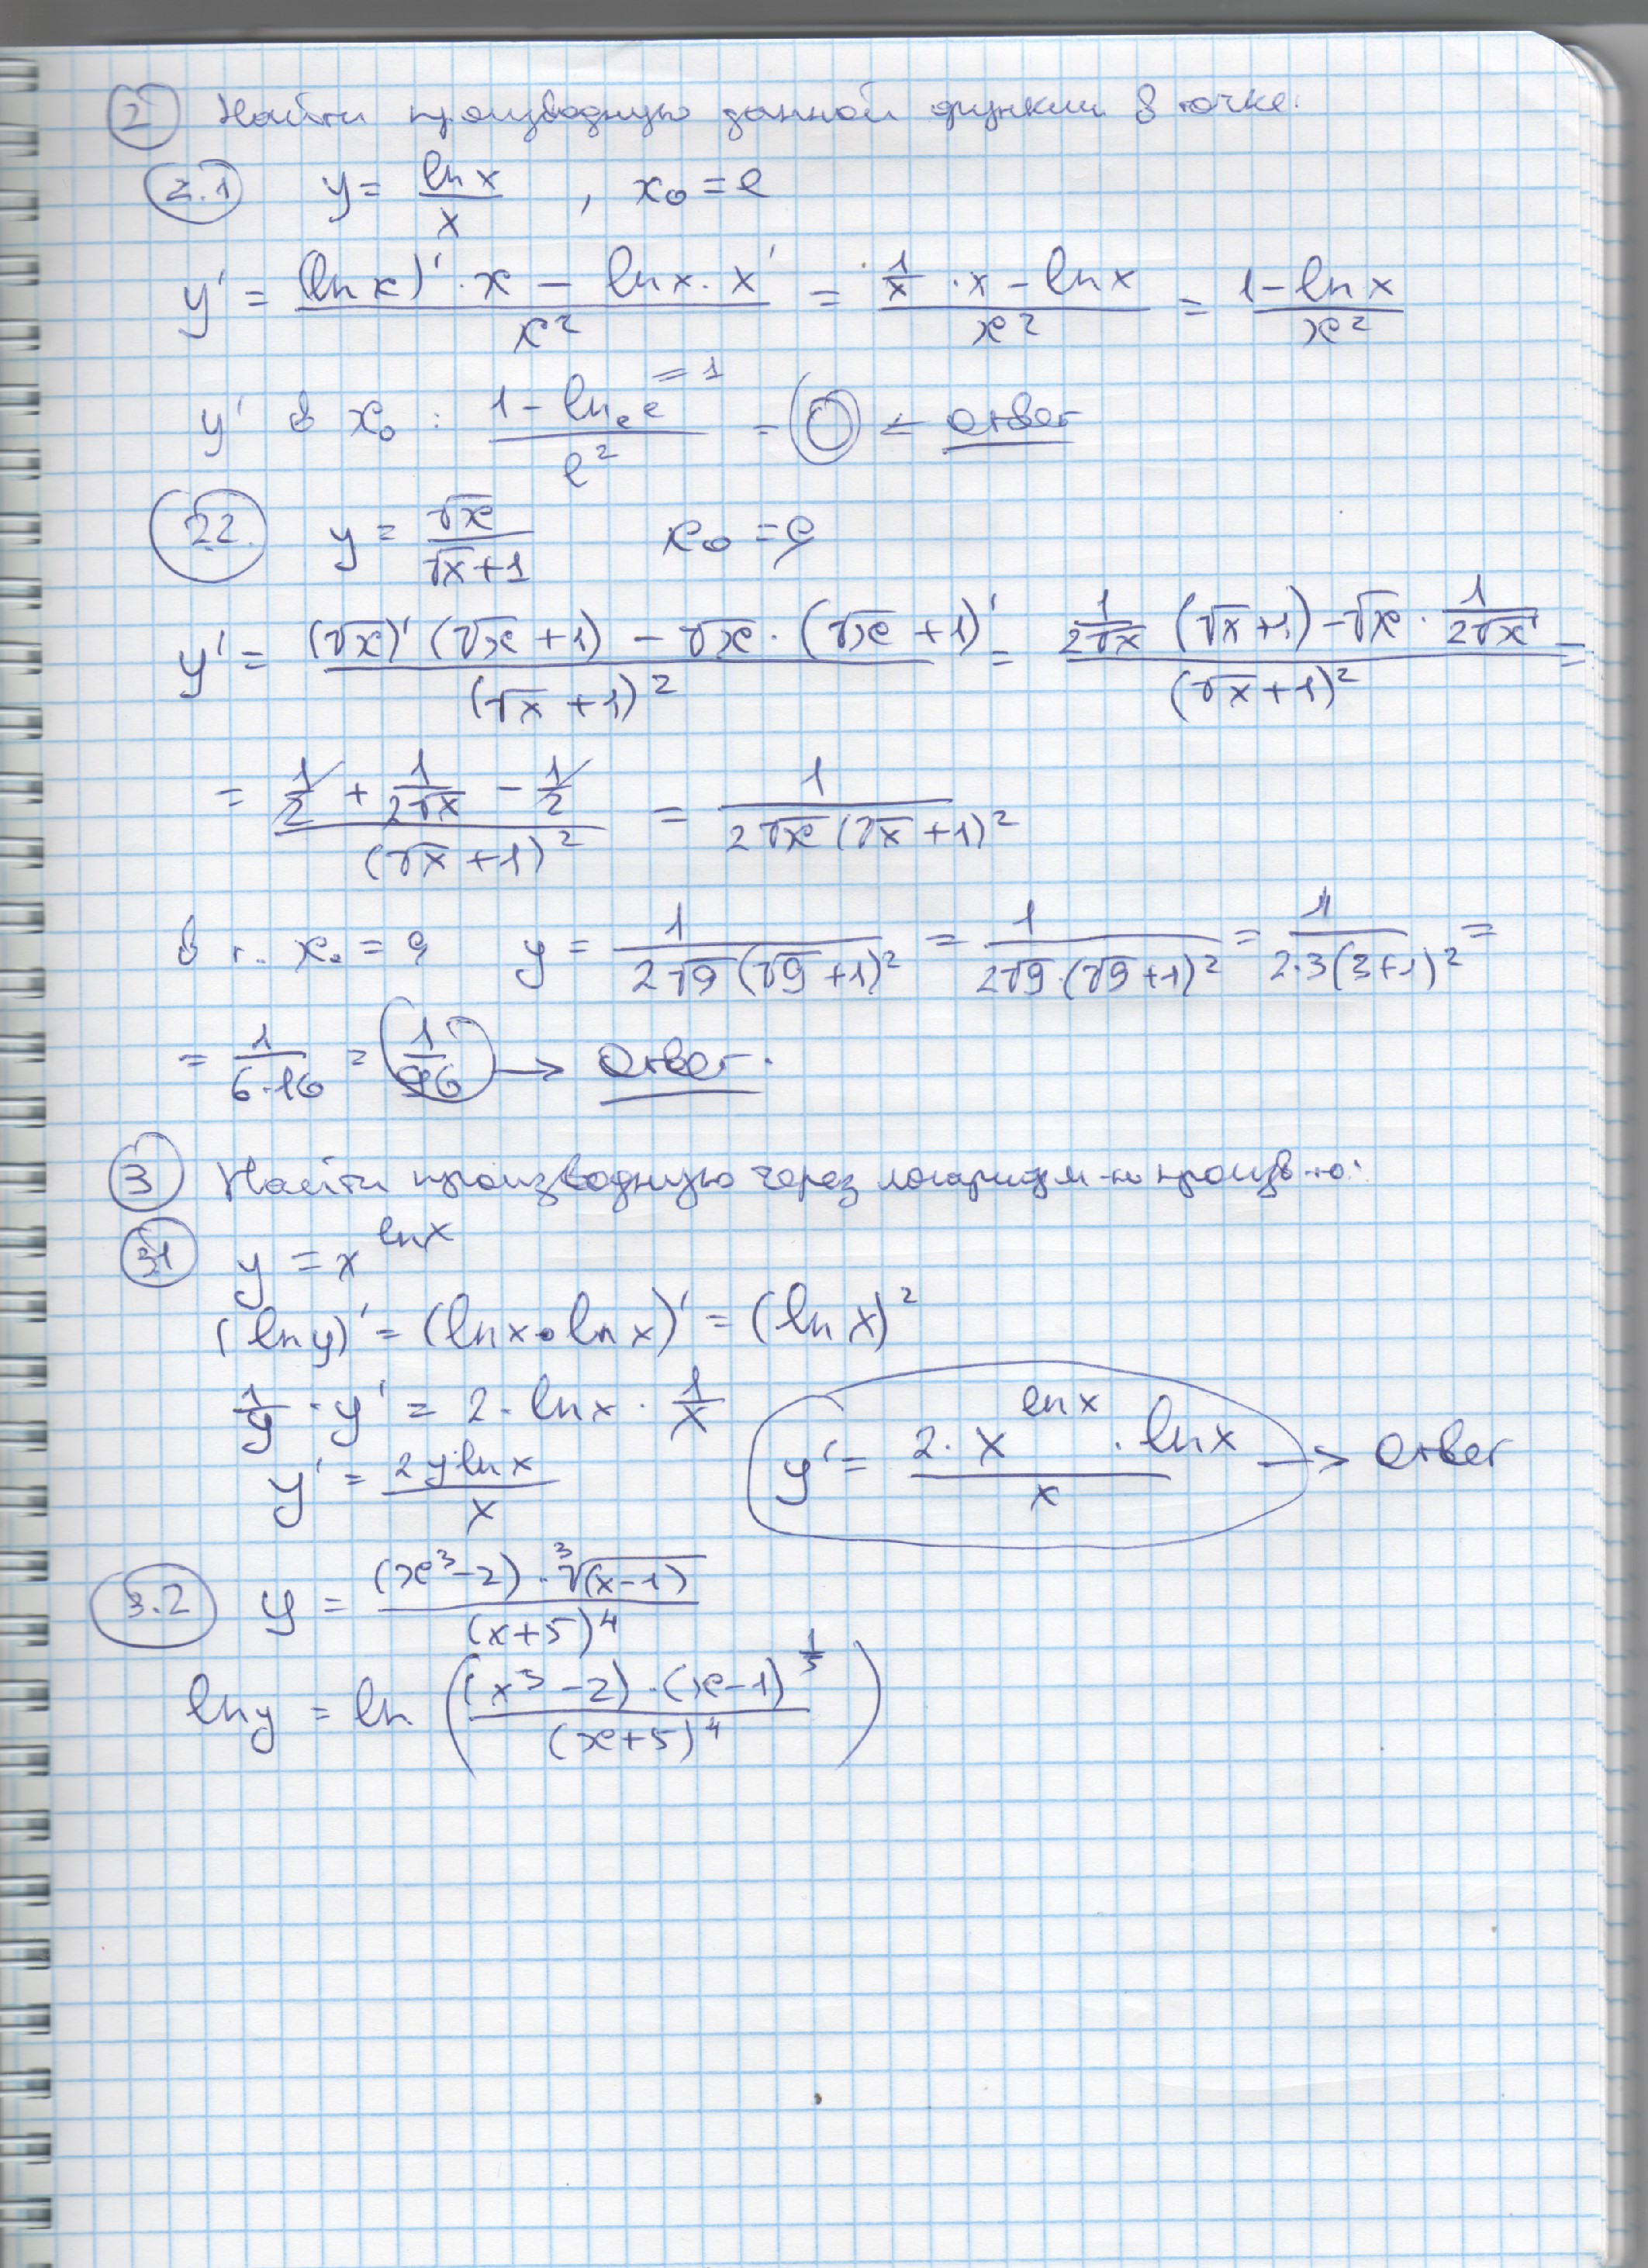 2 Найти производную данной функции в точке.
2.1 y = ln x / x , x₀ = e
y' = ((ln x)' · x − ln x · x') / x² = (1/x · x − ln x) / x² = (1 − ln x) / x²
y' в x₀ : (1 − lnₑ e) / e² = 0 ← ответ
= 1
2.2. y = √x / (√x + 1) x₀ = 9
y' = ((√x)' (√x + 1) − √x · (√x + 1)') / (√x + 1)² = (1/(2√x) (√x + 1) − √x · 1/(2√x)) / (√x + 1)² =
= (1/2 + 1/(2√x) − 1/2) / (√x + 1)² = 1 / (2√x (√x + 1)²)
в т. x₀ = 9 y = 1 / (2√9 (√9 + 1)²) = 1 / (2√9 · (√9 + 1)²) = 1 / (2·3(3+1)²) =
= 1/(6·16) = 1/96 → ответ.
3 Найти производную через логарифм-ю произв-ю:
3.1 y = x^(ln x)
(ln y)' = (ln x · ln x)' = (ln x)²
1/y · y' = 2 · ln x · 1/x
y' = 2y ln x / x y' = 2 · x^(ln x) · ln x / x → ответ
3.2 y = (x³ − 2) · ³√(x − 1) / (x + 5)⁴
ln y = ln ((x³ − 2) · (x − 1)^(1/3) / (x + 5)⁴)